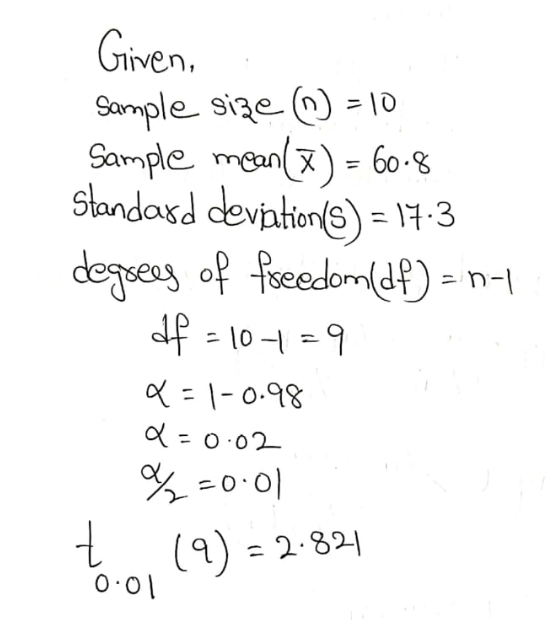 Given,
Sample size (n) = 10
Sample mean(x̄) = 60.8
Standard deviation(S) = 17.3
degrees of freedom(df) = n-1
df = 10-1 = 9
α = 1-0.98
α = 0.02
α/2 = 0.01
t0.01 (9) = 2.821